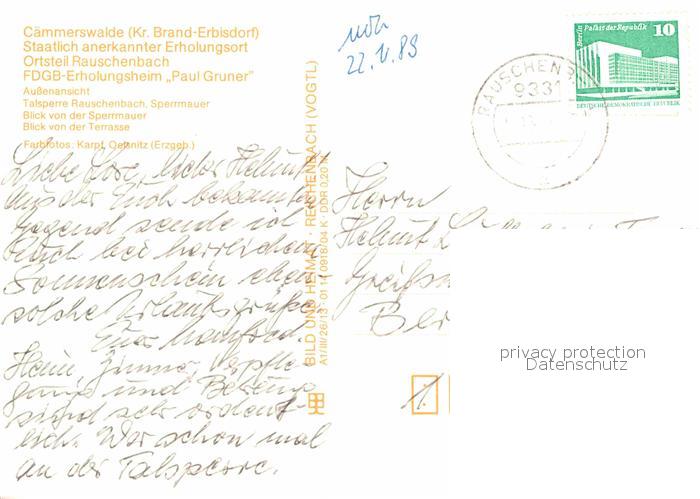 Cämmerswalde (Kr. Brand-Erbisdorf)
Staatlich anerkannter Erholungsort
Ortsteil Rauschenbach
FDGB-Erholungsheim „Paul Gruner"
Außenansicht
Talsperre Rauschenbach, Sperrmauer
Blick von der Sperrmauer
Blick von der Terrasse
Farbfotos: Karpf, Oelsnitz (Erzgeb.)
Liebe Lore, lieber Helmut!
Aus der Euch bekannten
Gegend sende ich
Euch bei herrlichem
Sonnenschein eben
solche Urlaubsgrüße
Euer Manfred.
Heim, Zimmer, Verpfle-
gung und Betreuung
sind sehr ordent-
lich. War schon mal
an der Talsperre.
BILD UND HEIMAT REICHENBACH (VOGTL)
A1/III/26/13 01 14 0918/04 K DDR 0,20 M
22.V.89
Berlin Palast der Republik
10
DEUTSCHE DEMOKRATISCHE REPUBLIK
RAUSCHENB
9331
Herrn
Helmut L
Greifsw
Ber
1.
privacy protection
Datenschutz